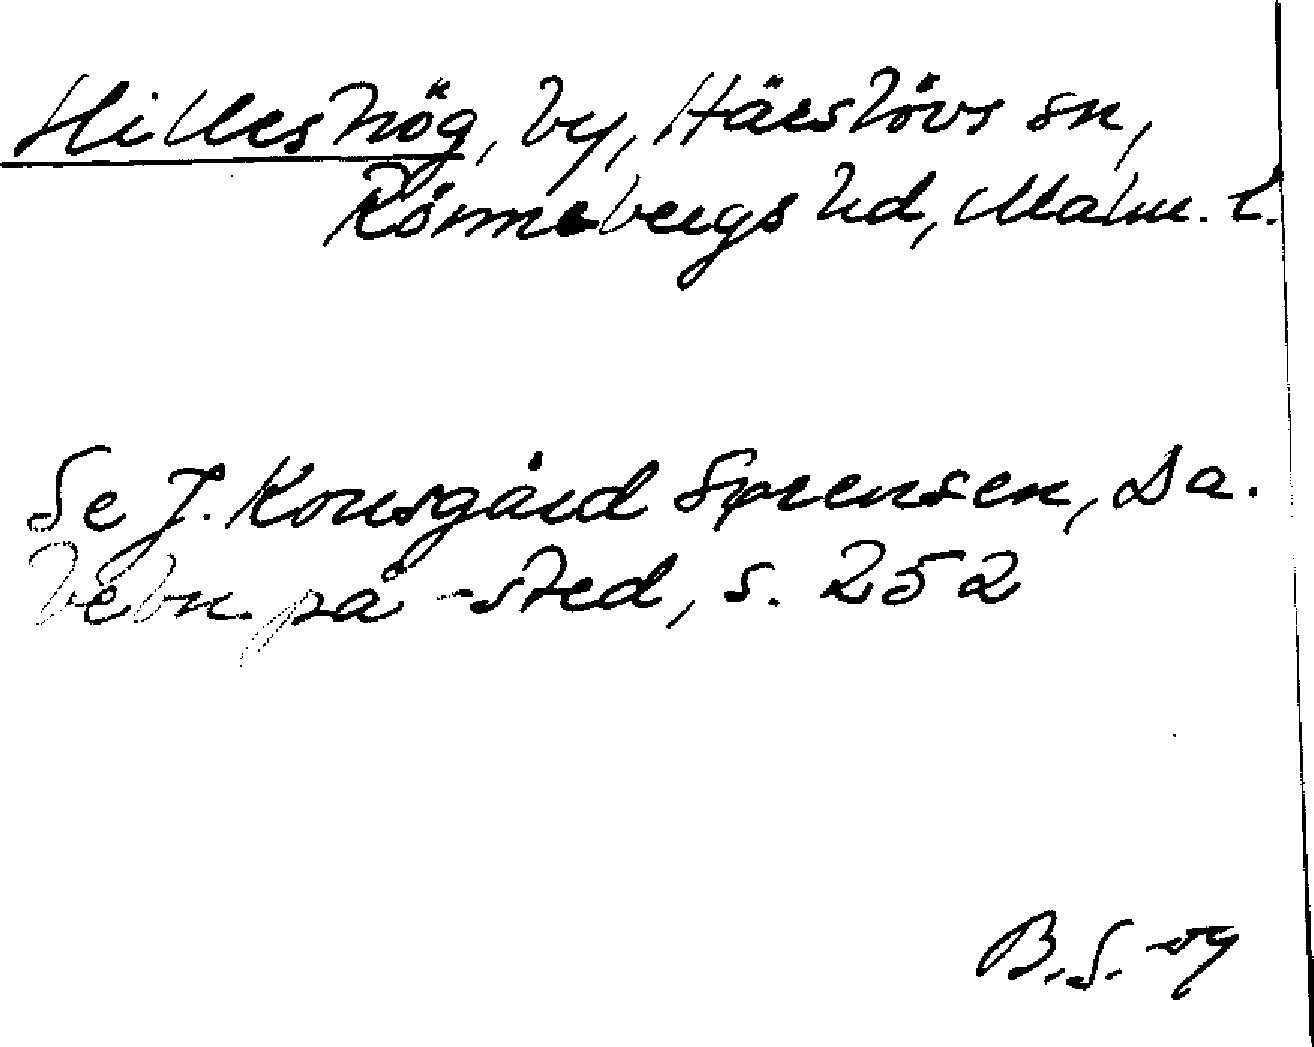 Hilleshög, by, Härslövs sn,
Rönnebergs hd, Malm. l.
Se J. Kousgård Sørensen, Da.
bebn. på -sted, s. 252
B. S-gg